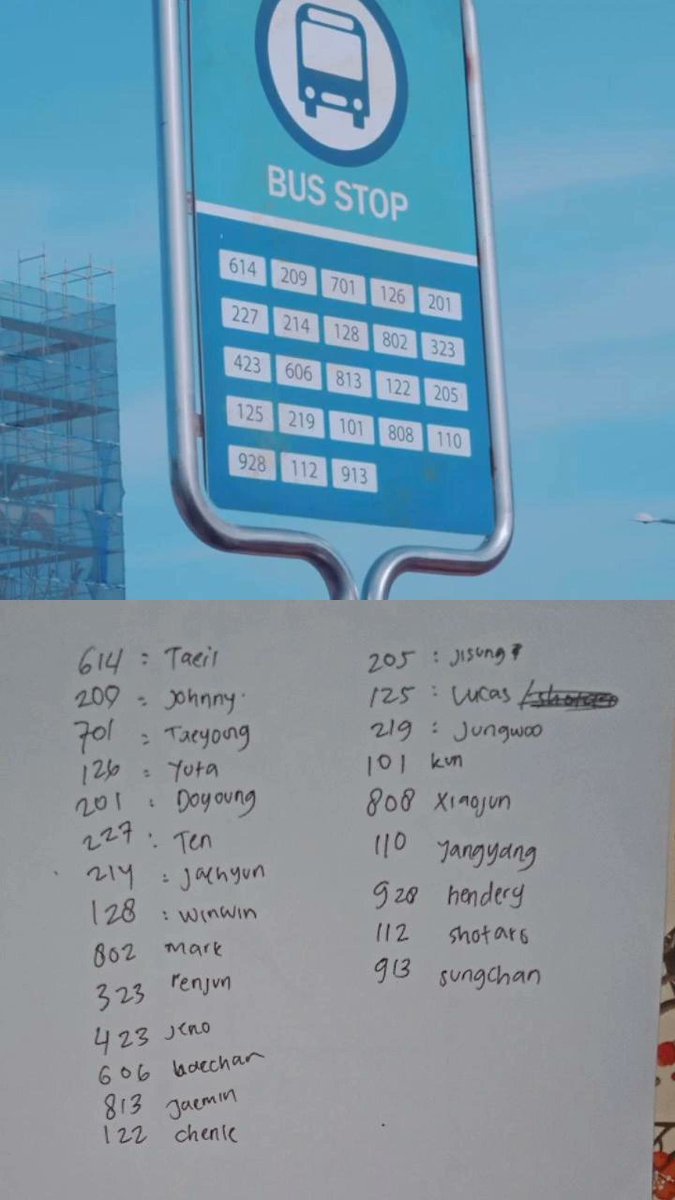 BUS STOP
614 209 701 126 201
227 214 128 802 323
423 606 813 122 205
125 219 101 808 110
928 112 913
614 : Taeil
209 = Johnny
701 = Taeyong
126 = Yuta
201 : Doyoung
227 : Ten
214 : Jaehyun
128 : winwin
802 mark
323 renjun
423 jeno
606 haechan
813 jaemin
122 chenle
205 : Jisung
125 : Lucas /
219 : Jungwoo
101 kun
808 xiaojun
110 yangyang
928 hendery
112 shotaro
913 sungchan